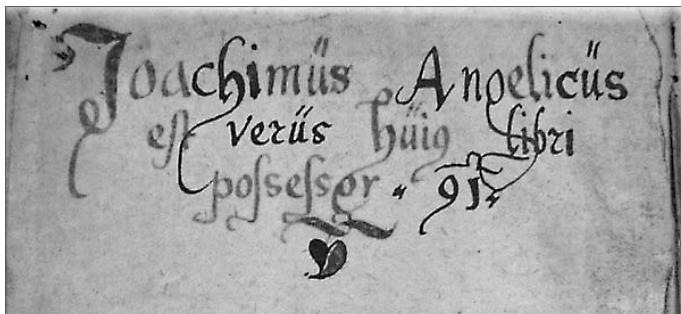 Joachimüs Angelicüs
est verüs hüiꝯ libri
possessor · 91 ·